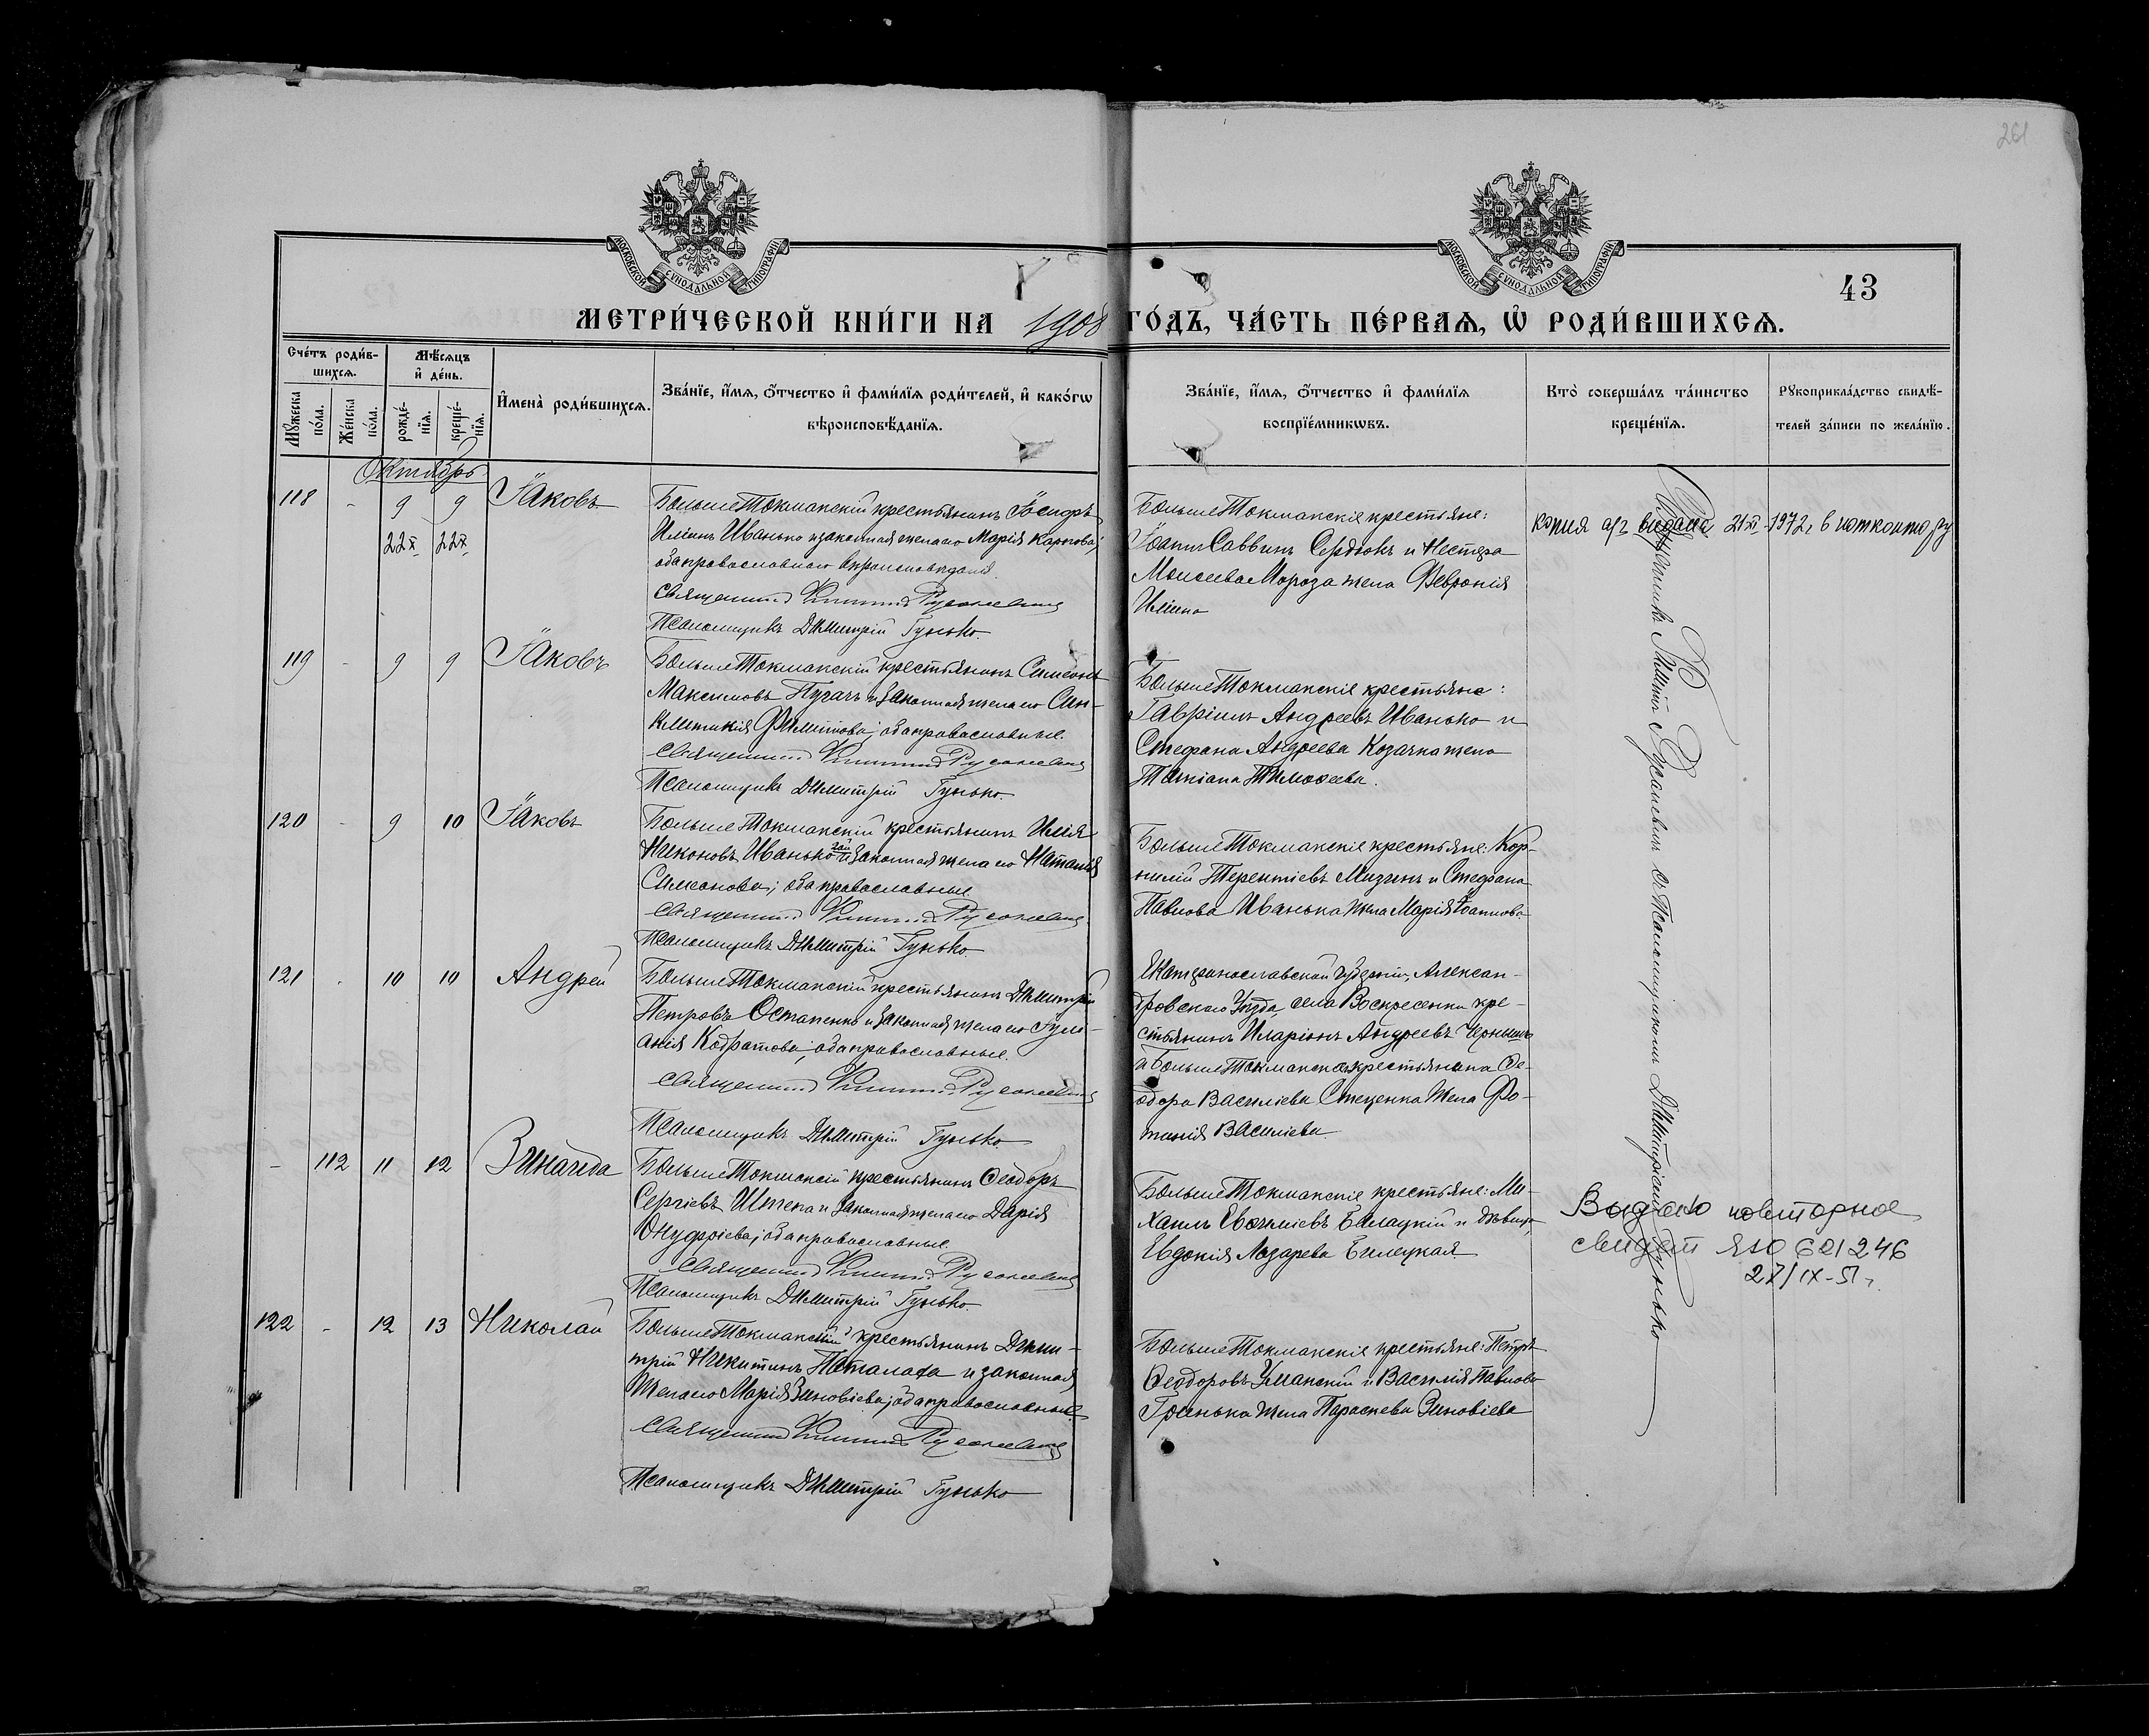 261
МОСКОВСКОЙ СѴНОДАЛЬНОЙ ТИПОГРАФІИ
МОСКОВСКОЙ СѴНОДАЛЬНОЙ ТИПОГРАФІИ
43
МЕТРИ́ЧЕСКОЙ КНИ́ГИ НА 1908 ГО́ДЪ, ЧА́СТЬ ПЕ́РВАѦ, Ѡ҆ РОДИ́ВШИХСѦ.
Сче́тъ роди́в-
шихсѧ.
Мꙋ́жеска по́ла.
Же́нска по́ла.
Мѣ́сѧцъ
и҆ де́нь.
рожде́-
нїѧ.
креще́-
нїѧ.
И҆мена̀ роди́вшихсѧ.
Зва́нїе, и҆́мѧ, ѻ҆́тчество и҆ фами́лїѧ роди́телей, и҆ како́гѡ
вѣроисповѣ́данїѧ.
Зва́нїе, и҆́мѧ, ѻ҆́тчество и҆ фами́лїѧ
воспрїе́мникѡвъ.
Кто̀ соверша́лъ та́инство
креще́нїѧ.
Рꙋкоприкла́дство свидѣ́-
телей за́писи по жела́нїю.
Октябрь
118 - 9 9 Іаковъ
22 X 22 X
БольшеТокмакскій крестьянинъ Іосифъ
Ильинъ Иванько и законная жена его Марія Карпова;
оба православнаго вѣроисповѣданія.
Священникъ
Псаломщикъ Димитрій Гунько.
БольшеТокмакскіе крестьяне:
Іоаннъ Саввинъ Сердюкъ и Нестера
Моисеева Мороза жена Февронія
Ильина
копия а/з видана 21 XI-1972г в нотконтору
119 - 9 9 Іаковъ
БольшеТокмакскій крестьянинъ Симеонъ
Максимовъ Пугачъ и законная жена его Син-
клитикія Филиппова; оба православные.
Священникъ
Псаломщикъ Димитрій Гунько.
БольшеТокмакскіе крестьяне:
Гавріилъ Андреевъ Иванько и
Стефана Андреева Козачка жена
Татіана Тимоѳеева.
120 - 9 10 Іаковъ
БольшеТокмакскій крестьянинъ Илія
Никоновъ Иванько и законная жена его Наталія
Симеонова; оба православные
Священникъ
Псаломщикъ Димитрій Гунько.
БольшеТокмакскіе крестьяне: Кор-
нилій Терентіевъ Мизинъ и Стефана
Павлова Иванька жена Марія Іоаннова
121 - 10 10 Андрей
БольшеТокмакскій крестьянинъ Димитрій
Петровъ Остапенко и законная жена его Іули-
анія Кодратова; оба православные.
Священникъ
Псаломщикъ Димитрій Гунько
Екатеринославской губерніи, Алексан-
дровскаго Уѣзда, села Воскресенки кре-
стьянинъ Иларіонъ Андреевъ Чернышъ
и БольшеТокмакскаго крестьянина Ѳе-
одора Василіева Стеценка жена Фо-
тинія Василіева.
- 112 11 12 Зинаида
БольшеТокмакскій крестьянинъ Ѳеодоръ
Сергіевъ Штепа и законная жена его Дарія
Онуфріева; оба православные.
Священникъ
Псаломщикъ Димитрій Гунько.
БольшеТокмакскіе крестьяне: Ми-
хаилъ Евѳиміевъ Билецкій и дѣвица
Евдокія Лазарева Билецкая
Видано повторное
свидет ЯЮ 601246
27/IX-51г.
122 - 12 13 Николай
БольшеТокмакскій крестьянинъ Дими-
трій Никитинъ Паталаха и законная
жена его Марія Зиновіева; оба православные
Священникъ
Псаломщикъ Димитрій Гунько
БольшеТокмакскіе крестьяне: Петръ
Ѳеодоровъ Уманскій и Василія Павлова
Гринька жена Параскева Зиновіева
Священникъ съ Псаломщикомъ Димитріемъ Гунько